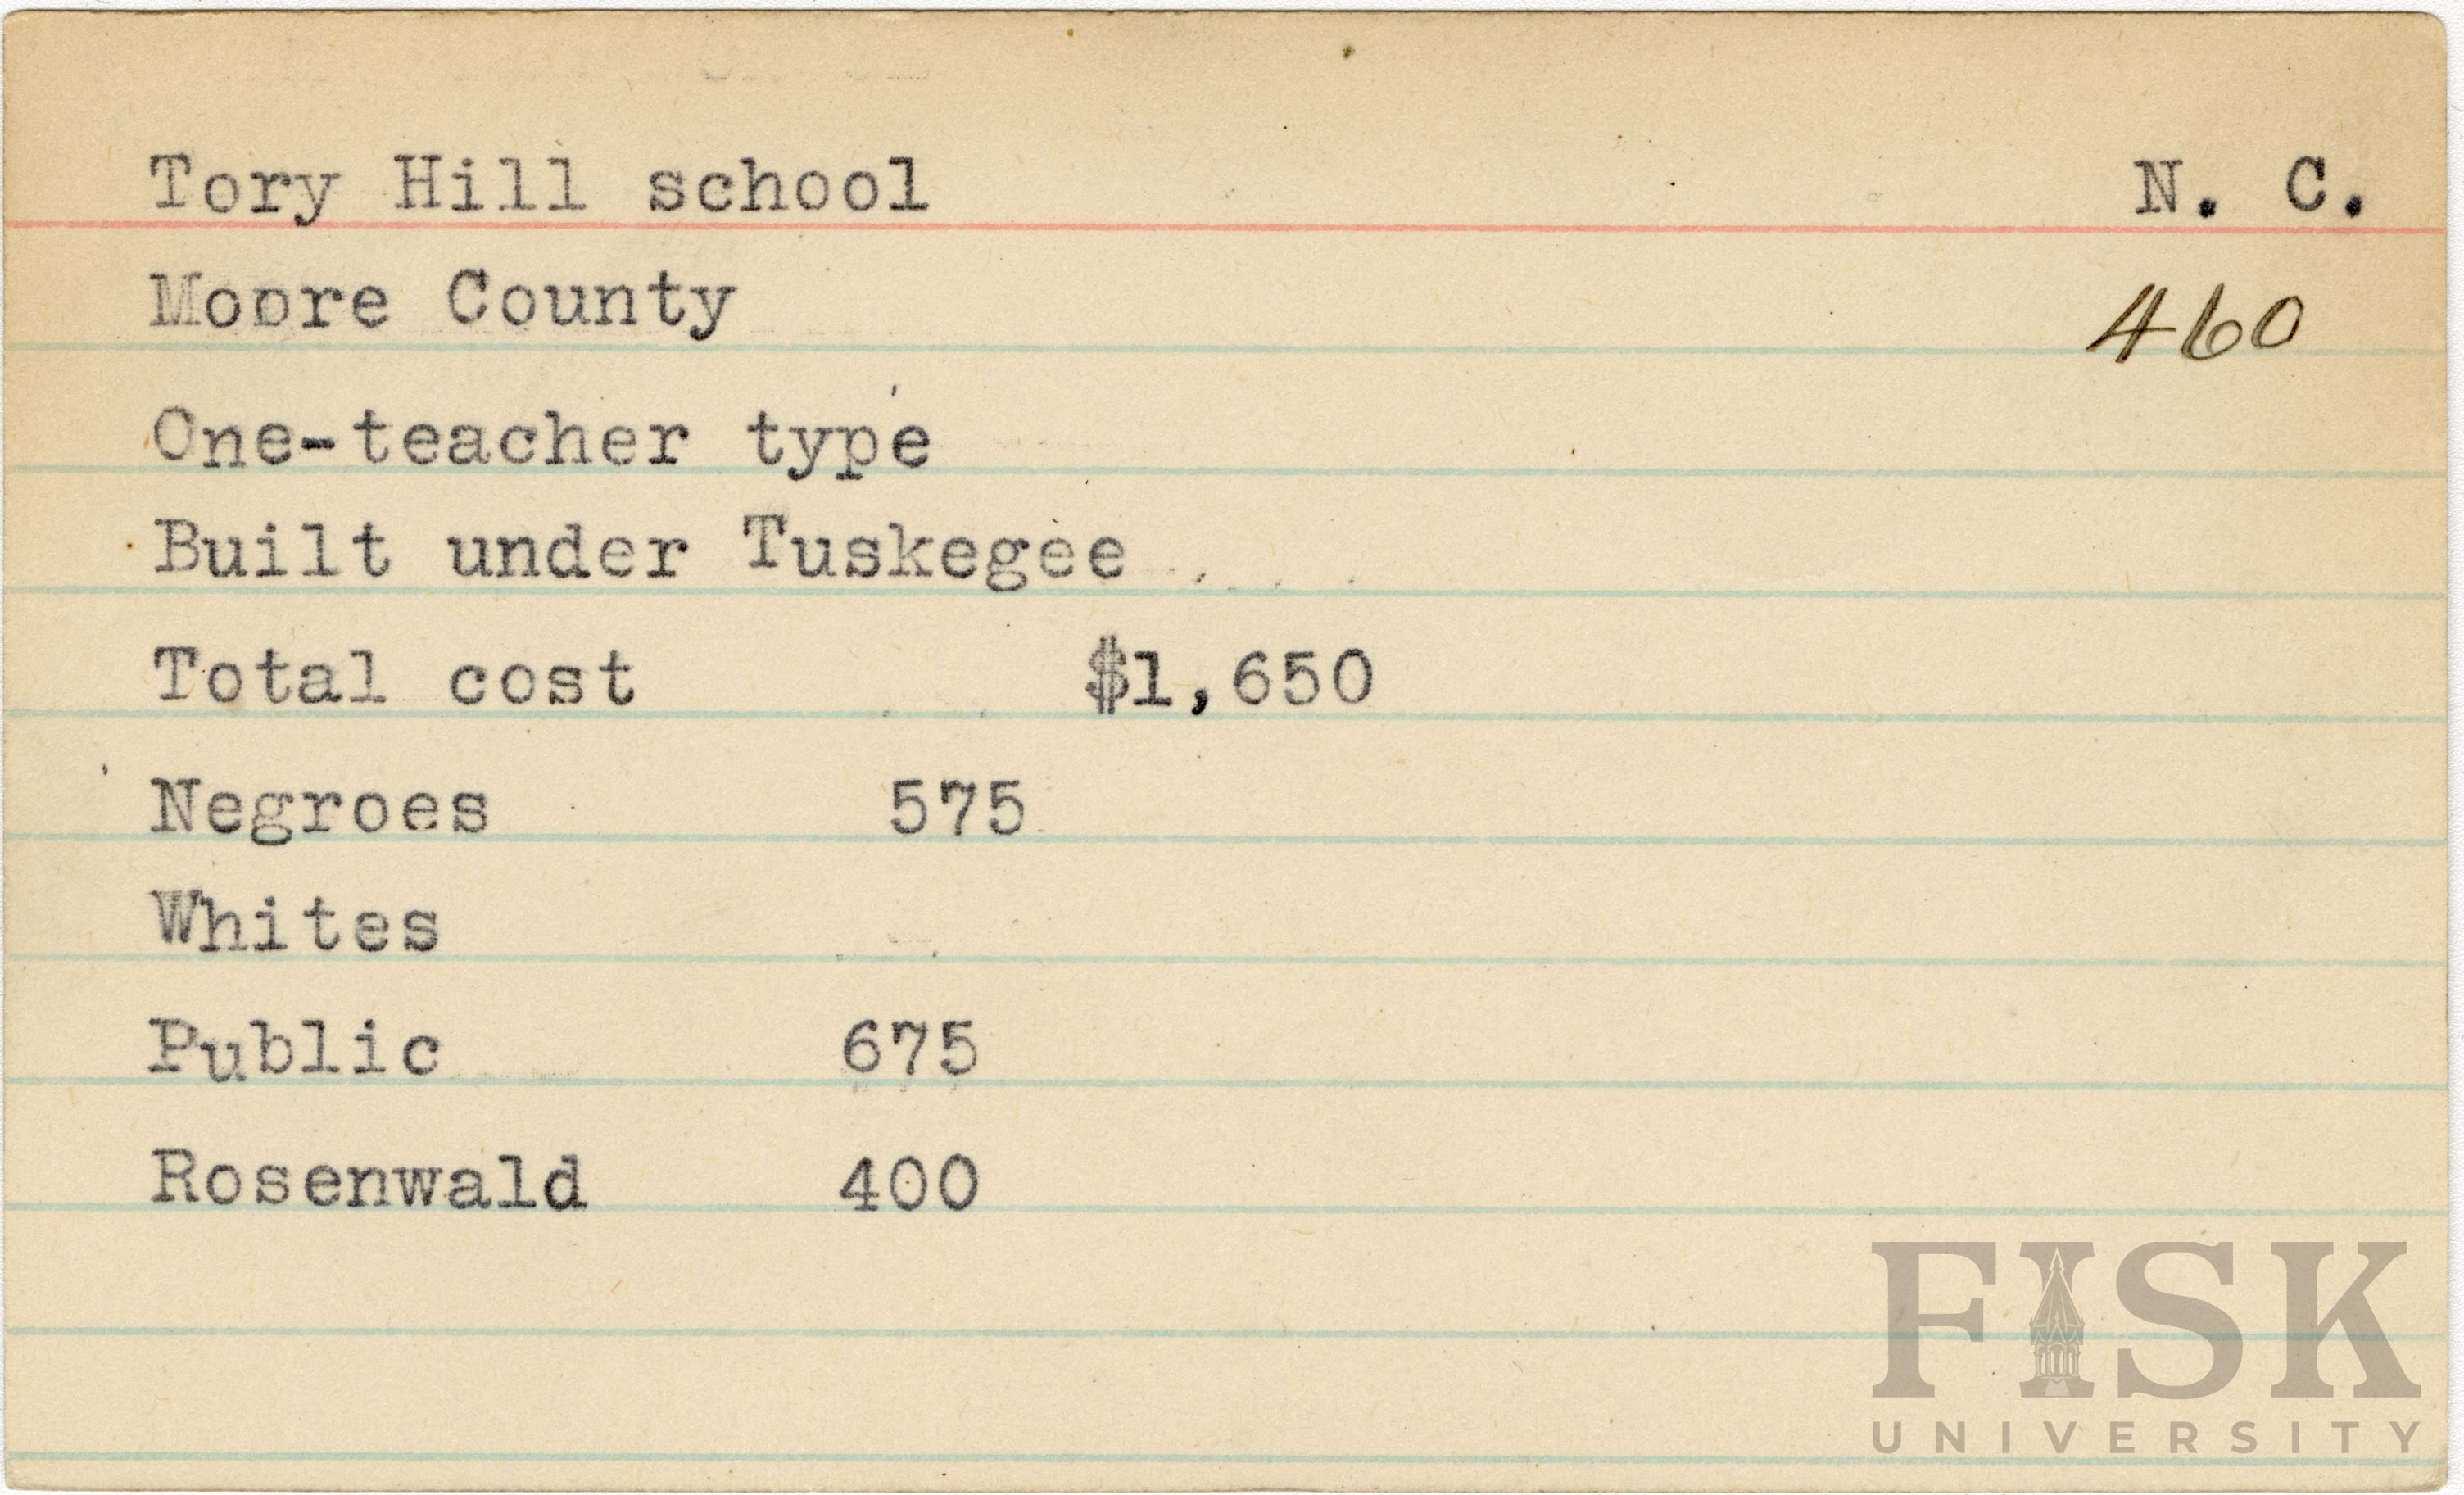 Tory Hill school N. C.
Moore County 460
One-teacher type
Built under Tuskegee
Total cost $1,650
Negroes 575
Whites
Public 675
Rosenwald 400
FISK
UNIVERSITY